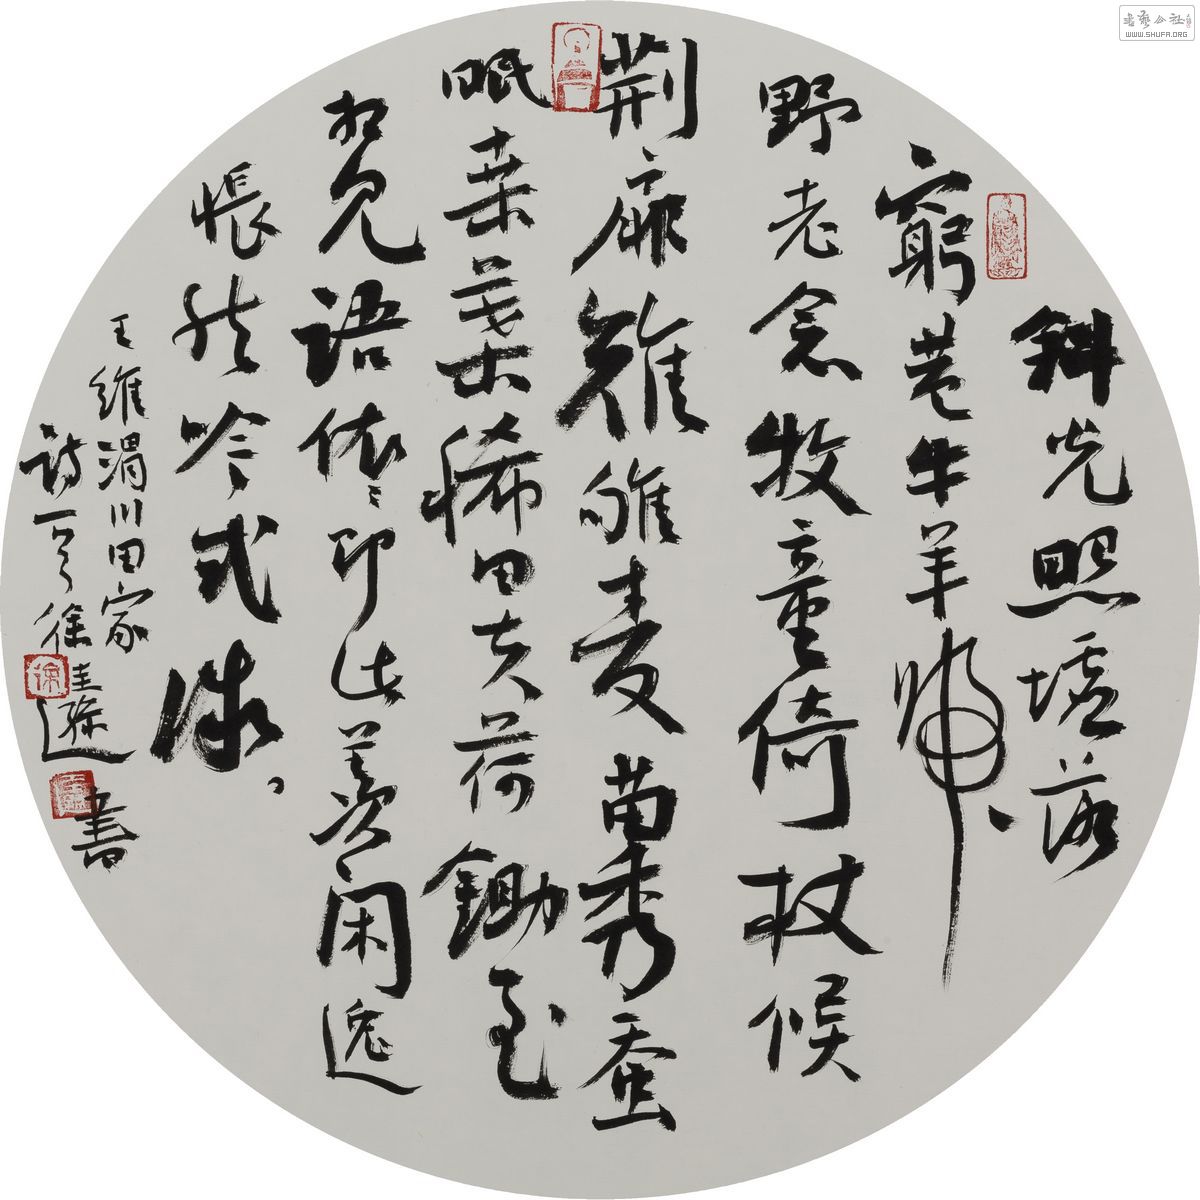 書藝公社
WWW.SHUFA.ORG
斜光照墟落
窮巷牛羊帰
野老念牧童倚杖候
荆扉雉雊麦苗秀蚕
眠桑葉稀田夫荷鋤至
相見语依々即此羡闲逸
悵然吟式微。
王維渭川田家
詩一首徐圭遜書